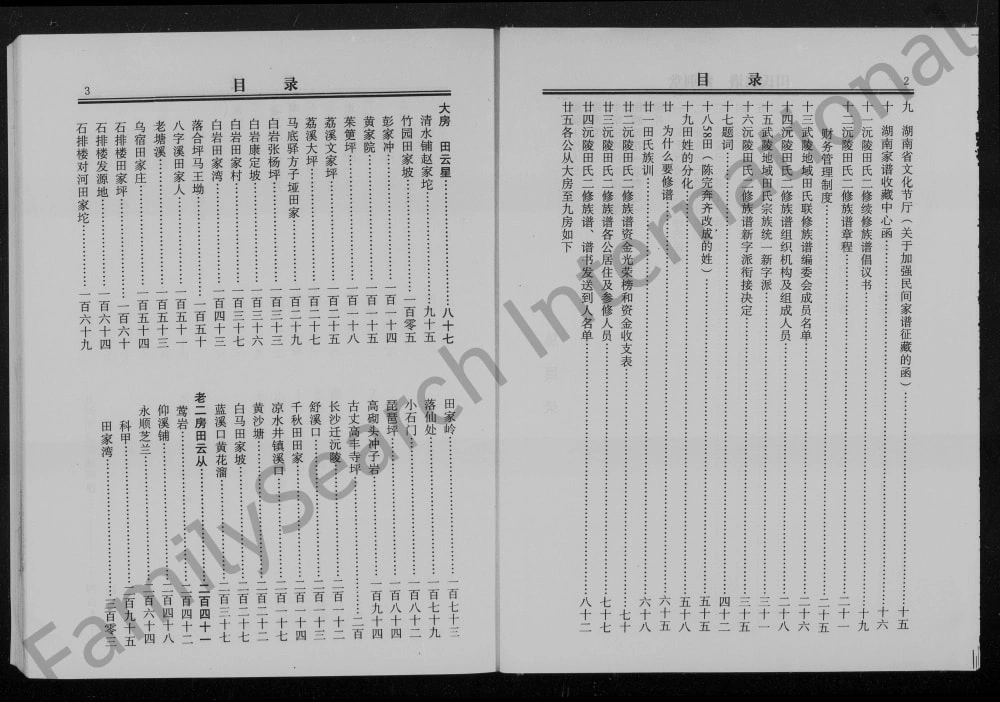 目 录
2
九 湖南省文化节厅（关于加强民间家谱征藏的函）……十五
十 湖南家谱收藏中心函……十六
十一沅陵田氏二修续修族谱倡议书……十九
十二沅陵田氏二修族谱章程……二十一
财务管理制度……二十五
十三武陵地域田氏联修族谱编委会成员名单……二十六
十四沅陵田氏二修族谱组织机构及组成人员……二十八
十五武陵地域田氏宗族统一新字派……三十一
十六沅陵田氏二修族谱新字派衔接决定……三十五
十七题词……四十二
十八588田（陈完奔齐改成的姓）……五十五
十九田姓的分化……五十八
廿 为什么要修谱……六十五
廿一田氏族训……六十八
廿二沅陵田氏二修族谱资金光荣榜和资金收支表……七十
廿三沅陵田氏二修族谱各公居住及参修人员……七十七
廿四沅陵田氏二修族谱、谱书发送到人名单……八十二
廿五各公从大房至九房如下
目 录
3
大房 田云星……八十七
清水铺赵家坨……九十五
竹园田家坡……一百零五
彭家冲……一百一十四
黄家院……一百一十五
茱萆坪……一百一十八
荔溪文家坪……一百二十五
荔溪大坪……一百二十七
马底驿方子垭田家……一百二十九
白岩张杨坪……一百三十
白岩康定坡……一百三十六
白岩田家村……一百三十七
白岩田家湾……一百四十三
落合坪马王坳……一百五十
八字溪田家人……一百五十一
老塘溪……一百五十三
乌宿田家庄……一百五十四
石排楼田家坪……一百六十
石排楼发源地……一百六十四
石排楼对河田家坨……一百六十九
田家岭……一百七十三
落仙处……一百七十九
小石门……一百八十二
琵琶坪……一百八十四
高砌头冲子岩……一百九十四
古丈高丰寺坪……二百
长沙迁沅陵……二百一十二
舒溪口……二百一十三
千秋田田家……二百一十四
凉水井镇溪口……二百二十二
黄沙塘……二百二十六
白马田家坡……二百二十七
蓝溪口黄花溜……二百三十七
老二房田云从……二百四十一
莺岩……二百四十二
仰溪铺……二百四十八
永顺芝兰……二百六十四
科甲……二百九十五
田家湾……三百零三
FamilySearch International